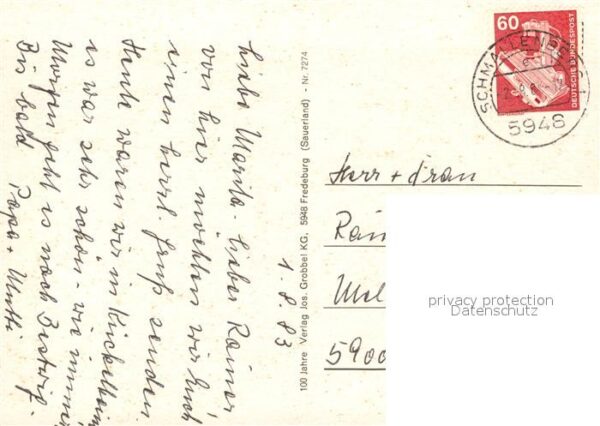 Liebe Marita - lieber Rainer,
von hier möchten wir Euch
einen herrl. Gruß senden
Heute waren wir in Kückelheim
es war sehr schön - wie immer
Morgen geht es nach Bestwig.
Bis bald Papa + Mutti
1.8.83
100 Jahre Verlag Jos. Grobbel KG, 5948 Fredeburg (Sauerland) - Nr. 7274
60
DEUTSCHE BUNDESPOST
SCHMALLENBERG
5948
Herr + Frau
Rain
5900
privacy protection
Datenschutz